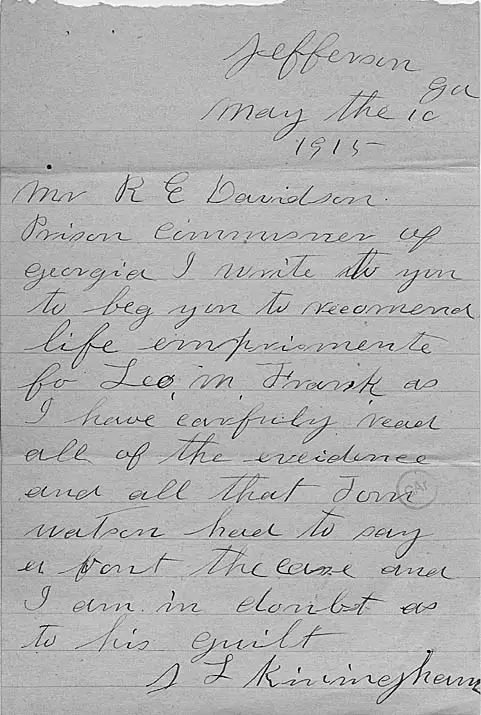 Jefferson
ga
May the 10
1915
Mr R E Davidson.
Prison commisner of
georgia I write to you
to beg you to recomend
life emprismente
fo Leo, m Frank as
I have carfuly read
all of the eveidence
and all that Tom
watson had to say
a bout the case and
I am in doubt as
to his guilt
L Kiningham